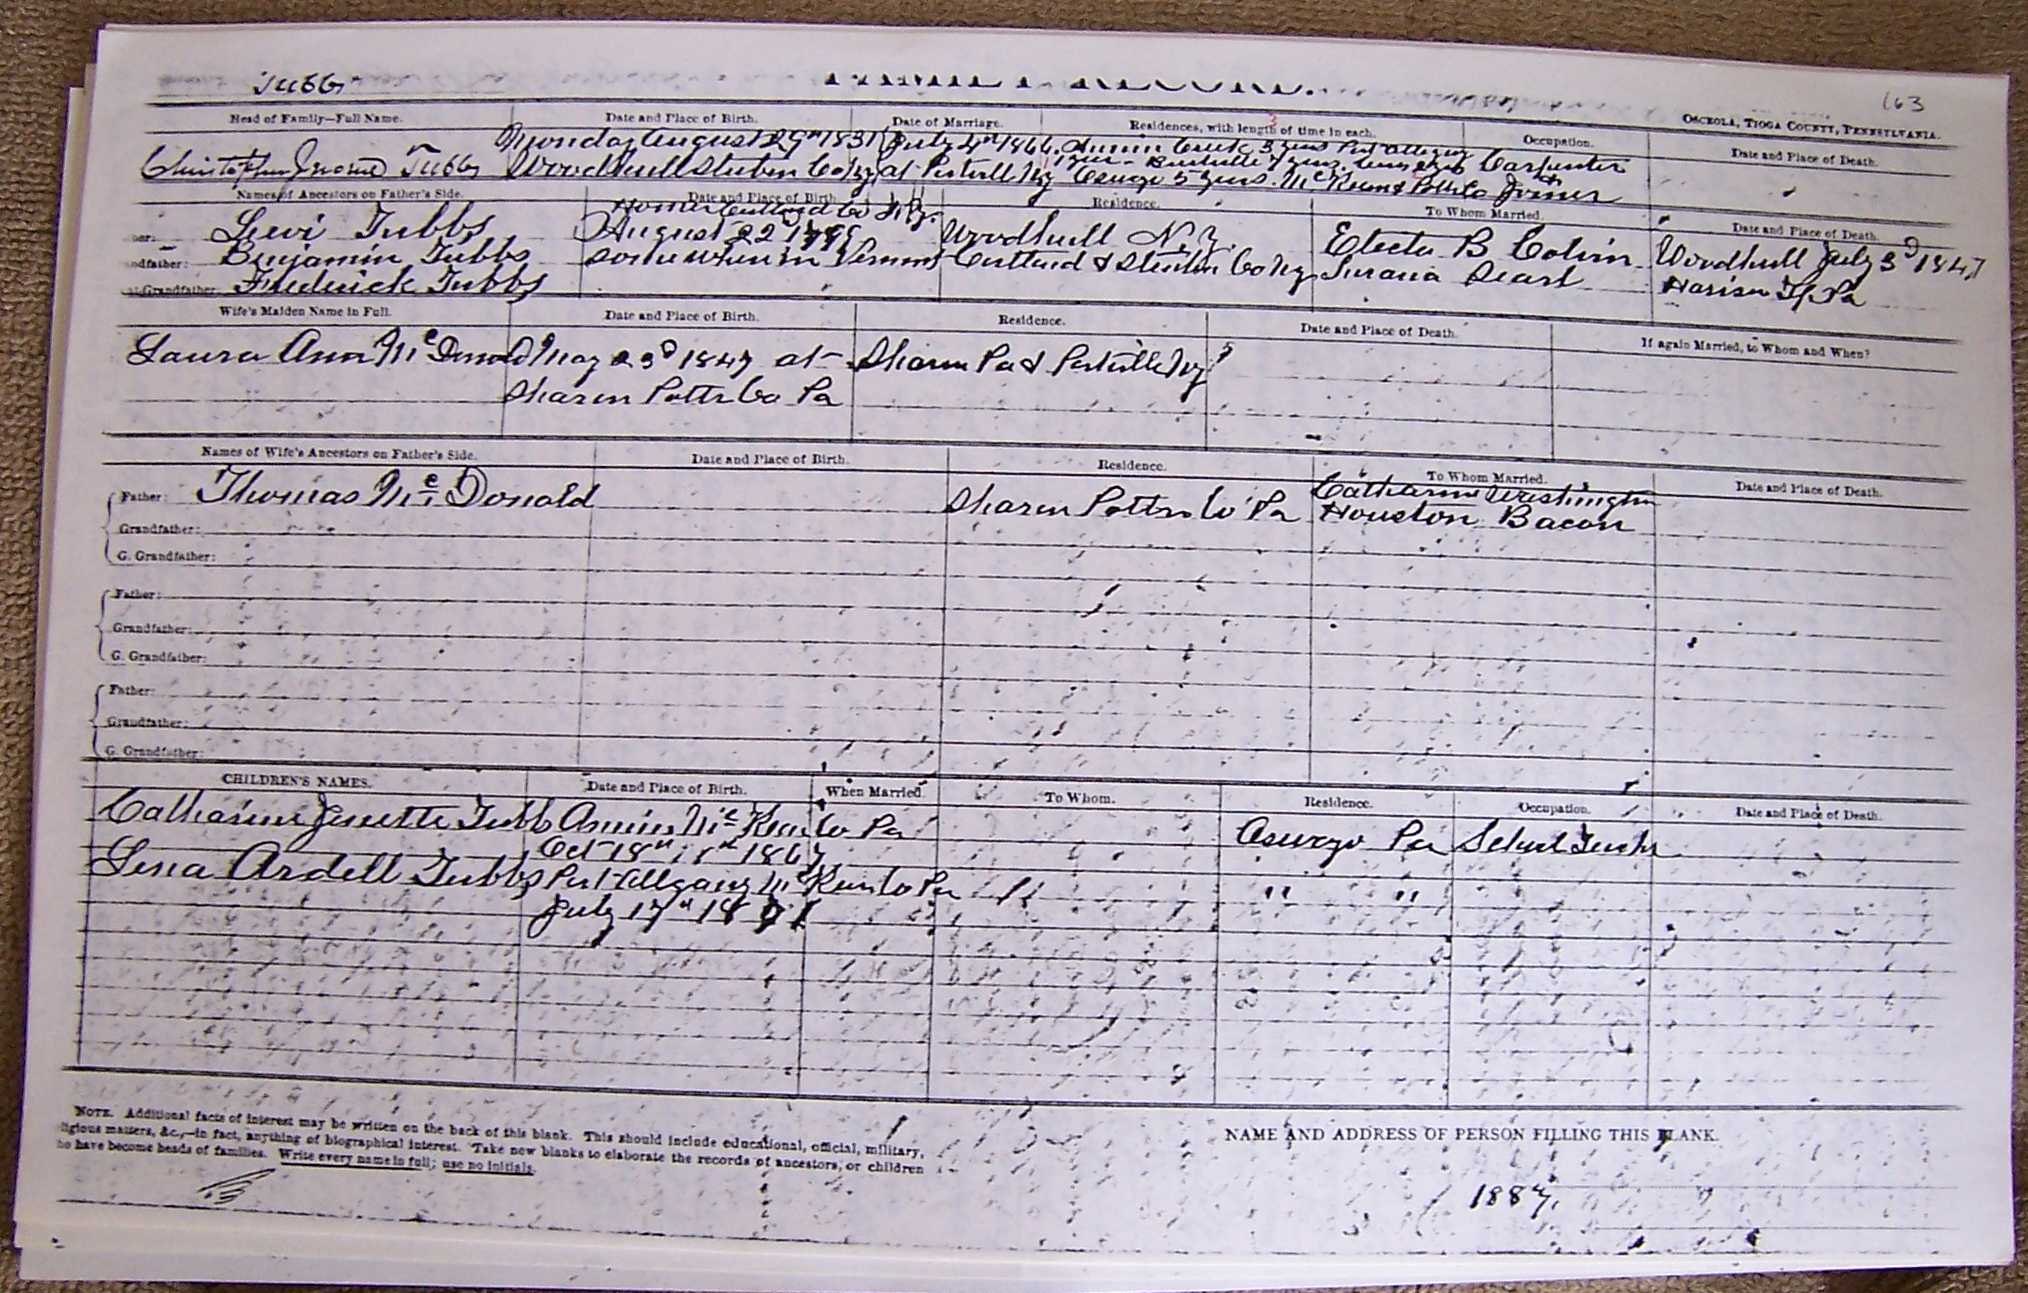 Tubbs
FAMILY RECORD.
163
Head of Family—Full Name.
Date and Place of Birth.
Date of Marriage.
Residences, with length of time in each.
Occupation.
OSCEOLA, TIOGA COUNTY, PENNSYLVANIA.
Date and Place of Death.
Christopher Jerome Tubbs
Monday August 29th 1831
Woodhull Steuben Co Ny
July 4th 1866
at Portvill Ny
Annin Creek 3 years Port Allegany
1 year
Oswayo 5 years. McKean & Potter Co
Carpenter
&
Joiner
Names of Ancestors on Father's Side.
Date and Place of Birth.
Residence.
To Whom Married.
Date and Place of Death.
Levi Tubbs
Homer Cortland Co N.Y.
August 22
Woodhull N.Y.
Electa B Colvin
Woodhull July 3d 1847
ndfather: Benjamin Tubbs
somewhere in Vermont
Cortland & Steuben Co Ny
Surana Searl
Harison Tp Pa
Grandfather: Frederick Tubbs
Wife's Maiden Name in Full.
Date and Place of Birth.
Residence.
Date and Place of Death.
If again Married, to Whom and When?
Laura Ann McDonald
May 23d 1847 at
Sharon Potter Co Pa
Sharon Pa & Portville Ny
Names of Wife's Ancestors on Father's Side.
Date and Place of Birth.
Residence.
To Whom Married.
Date and Place of Death.
Father: Thomas McDonald
Sharon Potter Co Pa
Catharine Washington
Houston Bacon
Grandfather:
G. Grandfather:
Father:
Grandfather:
G. Grandfather:
Father:
Grandfather:
G. Grandfather:
CHILDREN'S NAMES.
Date and Place of Birth.
When Married.
To Whom.
Residence.
Occupation.
Date and Place of Death.
Catharine Jenette Tubbs
Annin McKean Co Pa
Oct 18th 1867
Oswayo Pa
School Teacher
Lena Ardell Tubbs
Port Allegany McKean Co Pa
July 17th 1871
" "
NOTE. Additional facts of interest may be written on the back of this blank. This should include educational, official, military,
ligious matters, &c.,—in fact, anything of biographical interest. Take new blanks to elaborate the records of ancestors, or children
ho have become heads of families. Write every name in full; use no initials.
NAME AND ADDRESS OF PERSON FILLING THIS BLANK.
1887.